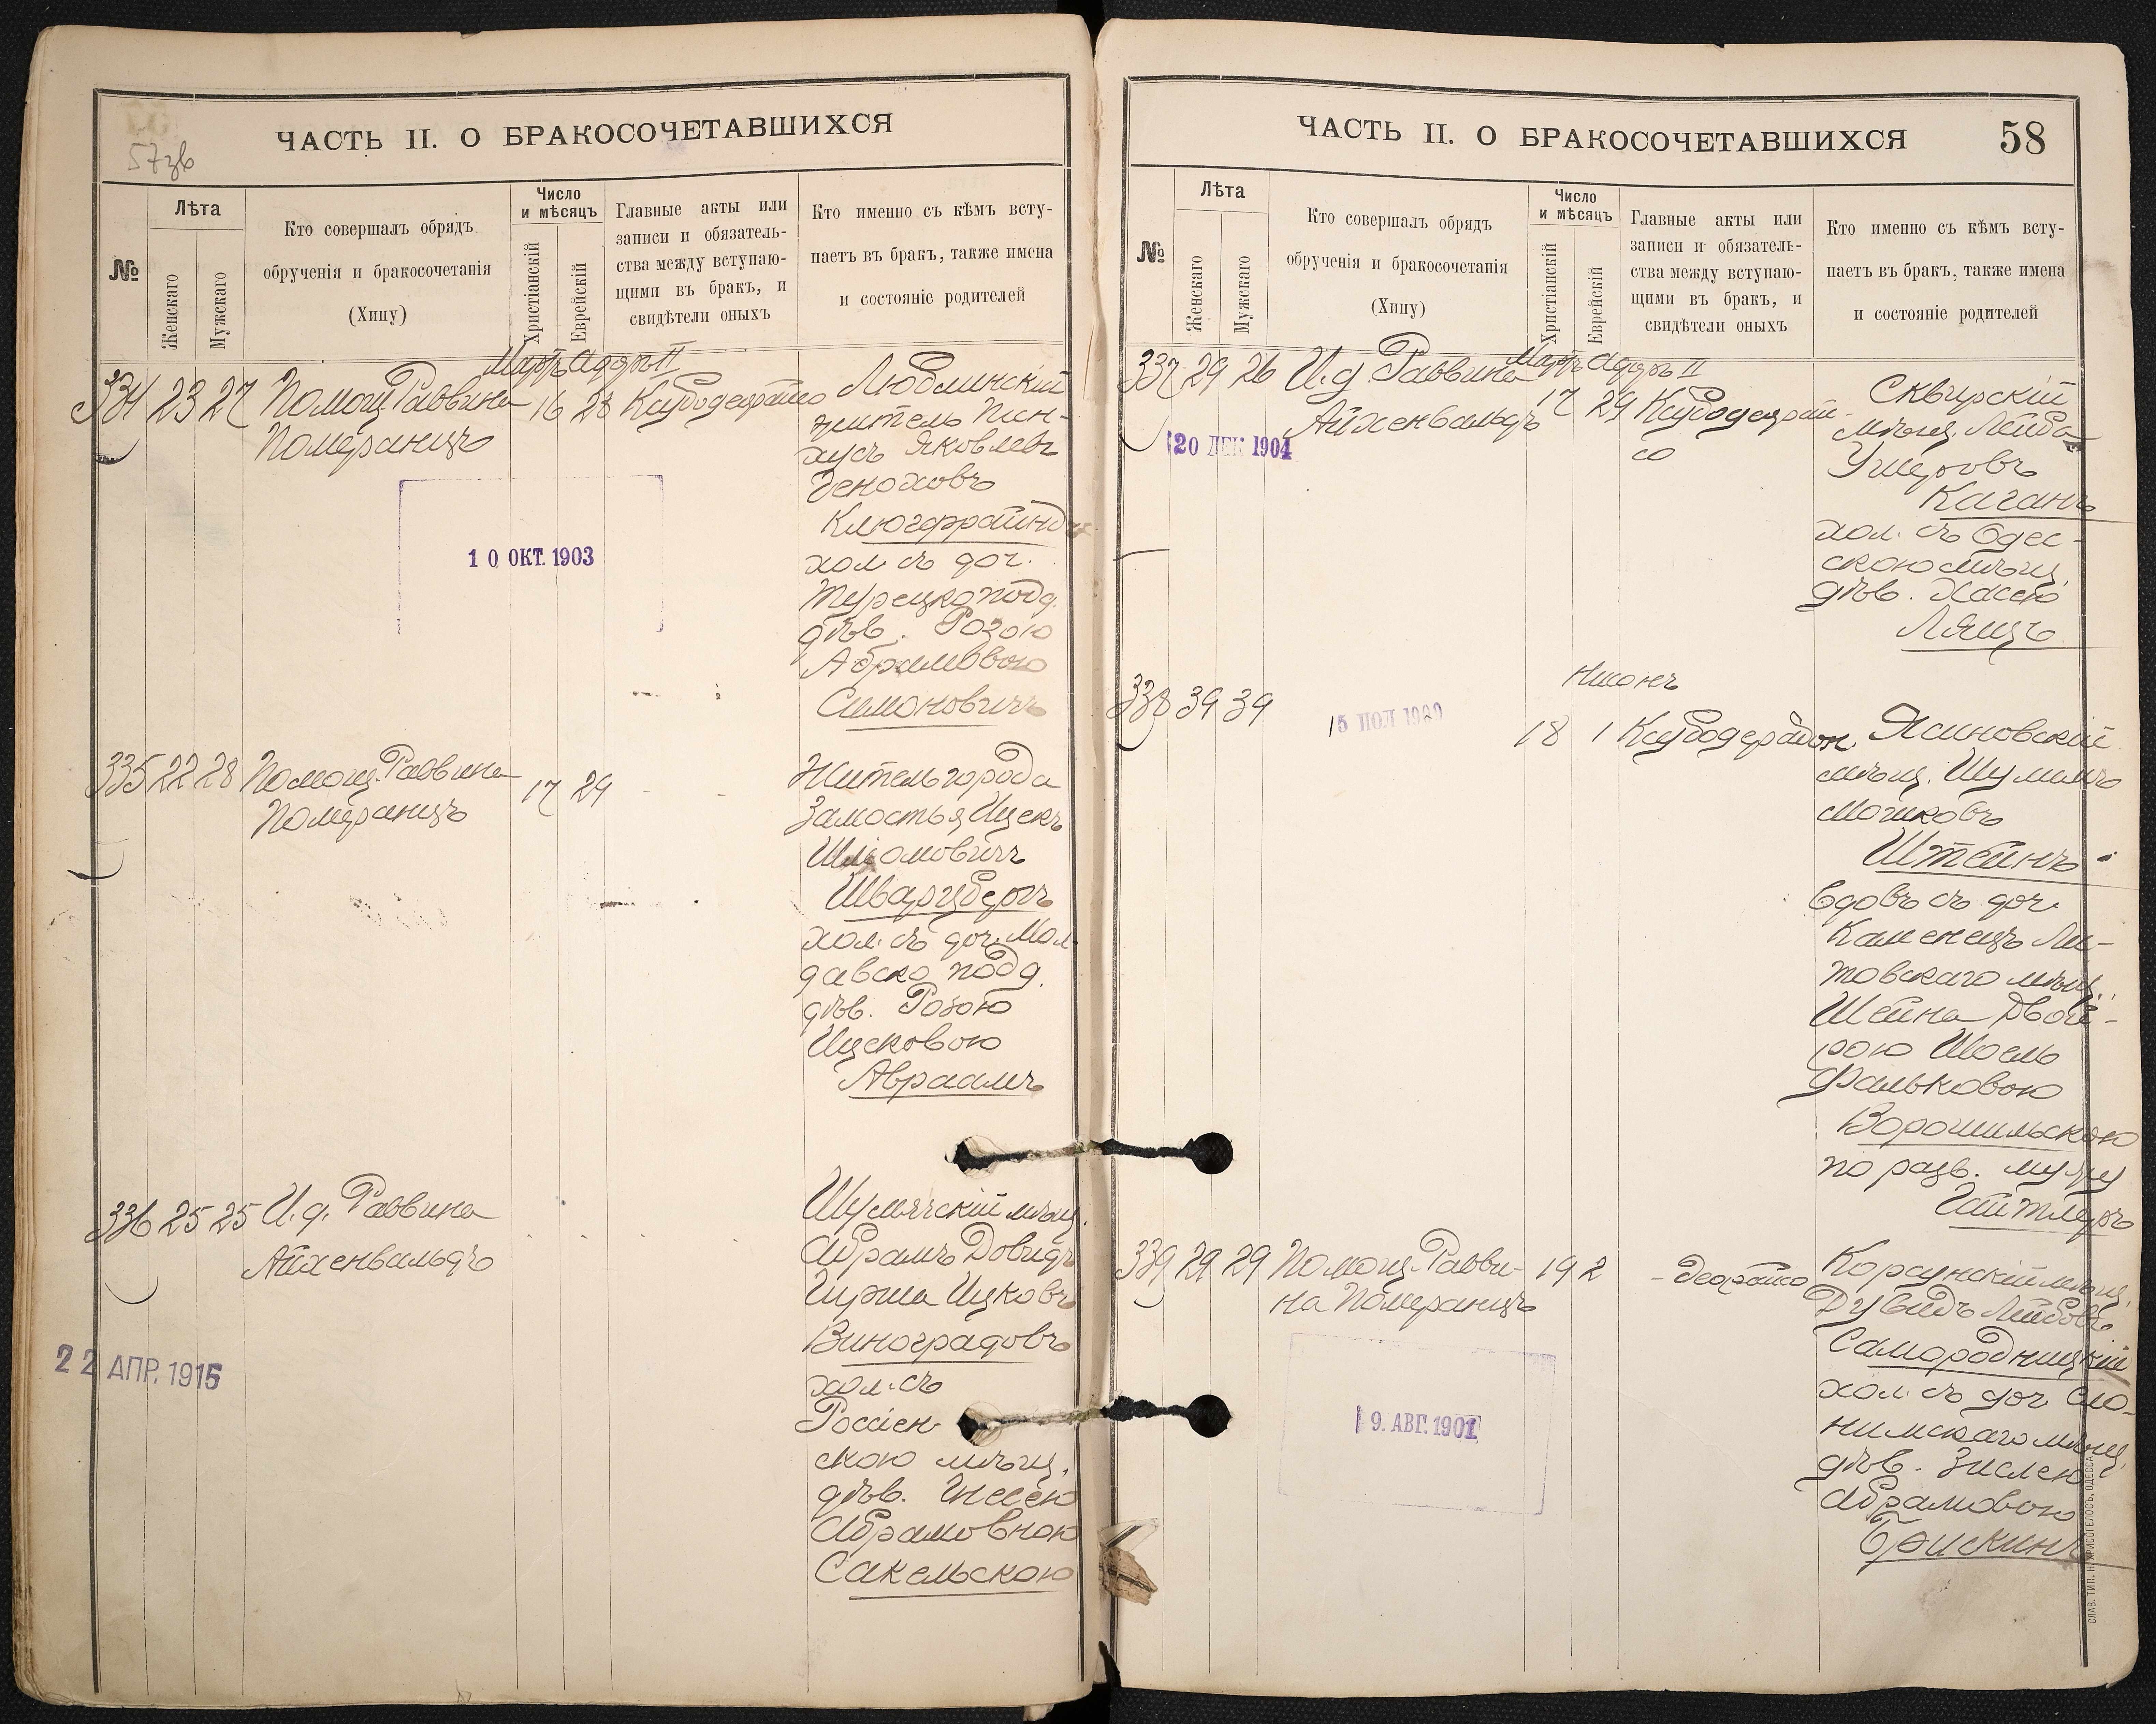 57зв
ЧАСТЬ II. О БРАКОСОЧЕТАВШИХСЯ
№
Лѣта
Женскаго
Мужскаго
Кто совершалъ обрядъ
обрученія и бракосочетанія
(Хипу)
Число
и мѣсяцъ
Христіанскій
Еврейскій
Главные акты или
записи и обязатель-
ства между вступаю-
щими въ бракъ, и
свидѣтели оныхъ
Кто именно съ кѣмъ всту-
паетъ въ бракъ, также имена
и состояніе родителей
Мартъ Адаръ II
334 23 27 Помощ. Раввина 16 28
Померанцъ
Люблинскій
житель Пин-
хусъ Яковлевъ
Генаховъ
Клюгфрайндъ
хол. съ доч.
Турецко подд.
дѣв. Розою
Абрамовою
Симоновичъ
10 ОКТ. 1903
335 22 28 Помощ. Раввина 17 29 - -
Померанцъ
Житель города
Замостья Ицекъ
Шліомовичъ
Шварцбергъ
хол. съ доч. Мол-
давско подд.
дѣв. Розою
Ицековою
Авраамъ
336 25 25 И. д. Раввина
Айхенвальдъ
Шумячскій мѣщ.
Абрамъ Довидъ
Гирша Ицковъ
Виноградовъ
хол. съ
Россіен-
скою мѣщ.
дѣв. Гнесею
Абрамовною
Сакельскою
22 АПР. 1915
ЧАСТЬ II. О БРАКОСОЧЕТАВШИХСЯ
58
№
Лѣта
Женскаго
Мужскаго
Кто совершалъ обрядъ
обрученія и бракосочетанія
(Хипу)
Число
и мѣсяцъ
Христіанскій
Еврейскій
Главные акты или
записи и обязатель-
ства между вступаю-
щими въ бракъ, и
свидѣтели оныхъ
Кто именно съ кѣмъ всту-
паетъ въ бракъ, также имена
и состояніе родителей
Мартъ Адаръ II
337 29 26 И. д. Раввина 17 29
Айхенвальдъ
20 ДЕК 1904
Сквирскій
мѣщ. Лейба
Ушеровъ
Каганъ
хол. съ Одес-
скою мѣщ.
дѣв. Хасею
Лящъ
Нисонъ
338 39 39 18 1
Ясиновскій
мѣщ. Шулимъ
Мошковъ
Штейнъ
вдовъ съ доч.
Каменецъ Ли-
товскаго мѣщ.
Шейна Двой-
рою Шоель
Фальковою
Ворошильскою
по разв. мужу
339 29 29 Помощ. Равви- 19 2
на Померанцъ
Корсунскій мѣщ.
Дувидъ Лейбовъ
Самородницкій
хол. съ доч. Сло-
нимскаго мѣщ.
дѣв. Зислею
Абрамовою
Брискинъ
9. АВГ. 1901
СЛАВ. ТИП. Н. ХРИСОГЕЛОСЪ, ОДЕССА